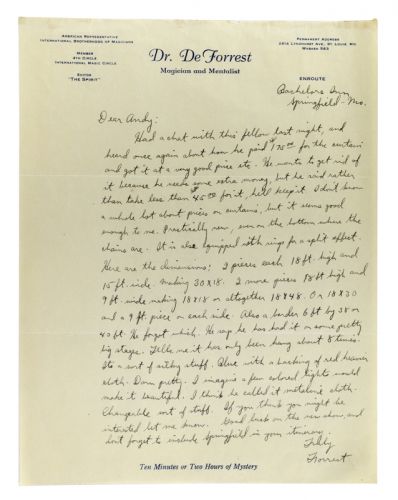 AMERICAN REPRESENTATIVE
INTERNATIONAL BROTHERHOOD OF MAGICIANS
MEMBER
4TH CIRCLE
INTERNATIONAL MAGIC CIRCLE
EDITOR
"THE SPIRIT"
Dr. De Forrest
Magician and Mentalist
PERMANENT ADDRESS
LYNDHURST AVE., ST. LOUIS, MO.
WABASH 583
ENROUTE
Bachelors Inn
Springfield - Mo.
Dear Andy:
Had a chat with this fellow last night, and
heard once again about how he paid $175.00 for the curtain
and got it at a very good price etc. He wants to get rid of
it because he needs some extra money, but he said rather
than take less than $45.00 for it, he'll keep it. I don't know
a whole lot about prices on curtains, but it seems good
enough to me. Practically new, even on the bottom where the
chains are. It is also equipped with rings for a split effect.
Here are the dimensions: 2 pieces each 18 ft. high and
15 ft. wide. making 30x18. 2 more pieces 18 ft high and
9 ft. wide making 18x18 or altogether 18x48. Or 18x30
and a 9 ft. piece on each side. Also a border 6 ft by 38 or
40 ft. He forgot which. He says he has had it on some pretty
big stages. Tells me it has only been hung about 8 times.
Its a sort of silky stuff. Blue with a backing of red heavier
cloth. Darn pretty. I imagine a few colored lights would
make it beautiful. I think he called it metaline cloth.
Changeable sort of stuff. If you think you might be
interested let me know. Good luck on the new show, and
dont forget to include Springfield in your itinerary.
Forrest
Ten Minutes or Two Hours of Mystery